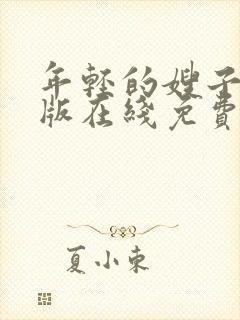 年轻的嫂子
版在线免费
夏小束